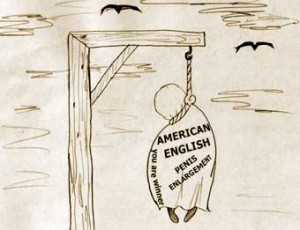 AMERICAN
ENGLISH
PENIS
ENLARGEMENT
you are winner